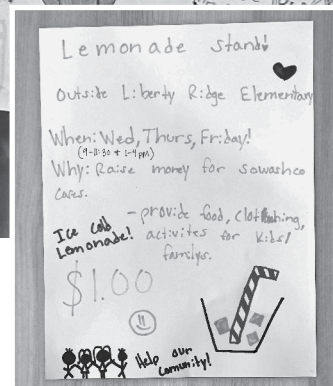 Lemonade Stand!
Outside Liberty Ridge Elementary
When: Wed, Thurs, Friday!
(9-11:30 + 1-4pm)
Why: Raise money for sowashco
cares.
- provide food, clothing,
activites for kids/
familys.
Ice cold
Lemonade!
$1.00
Help our
Comunity!